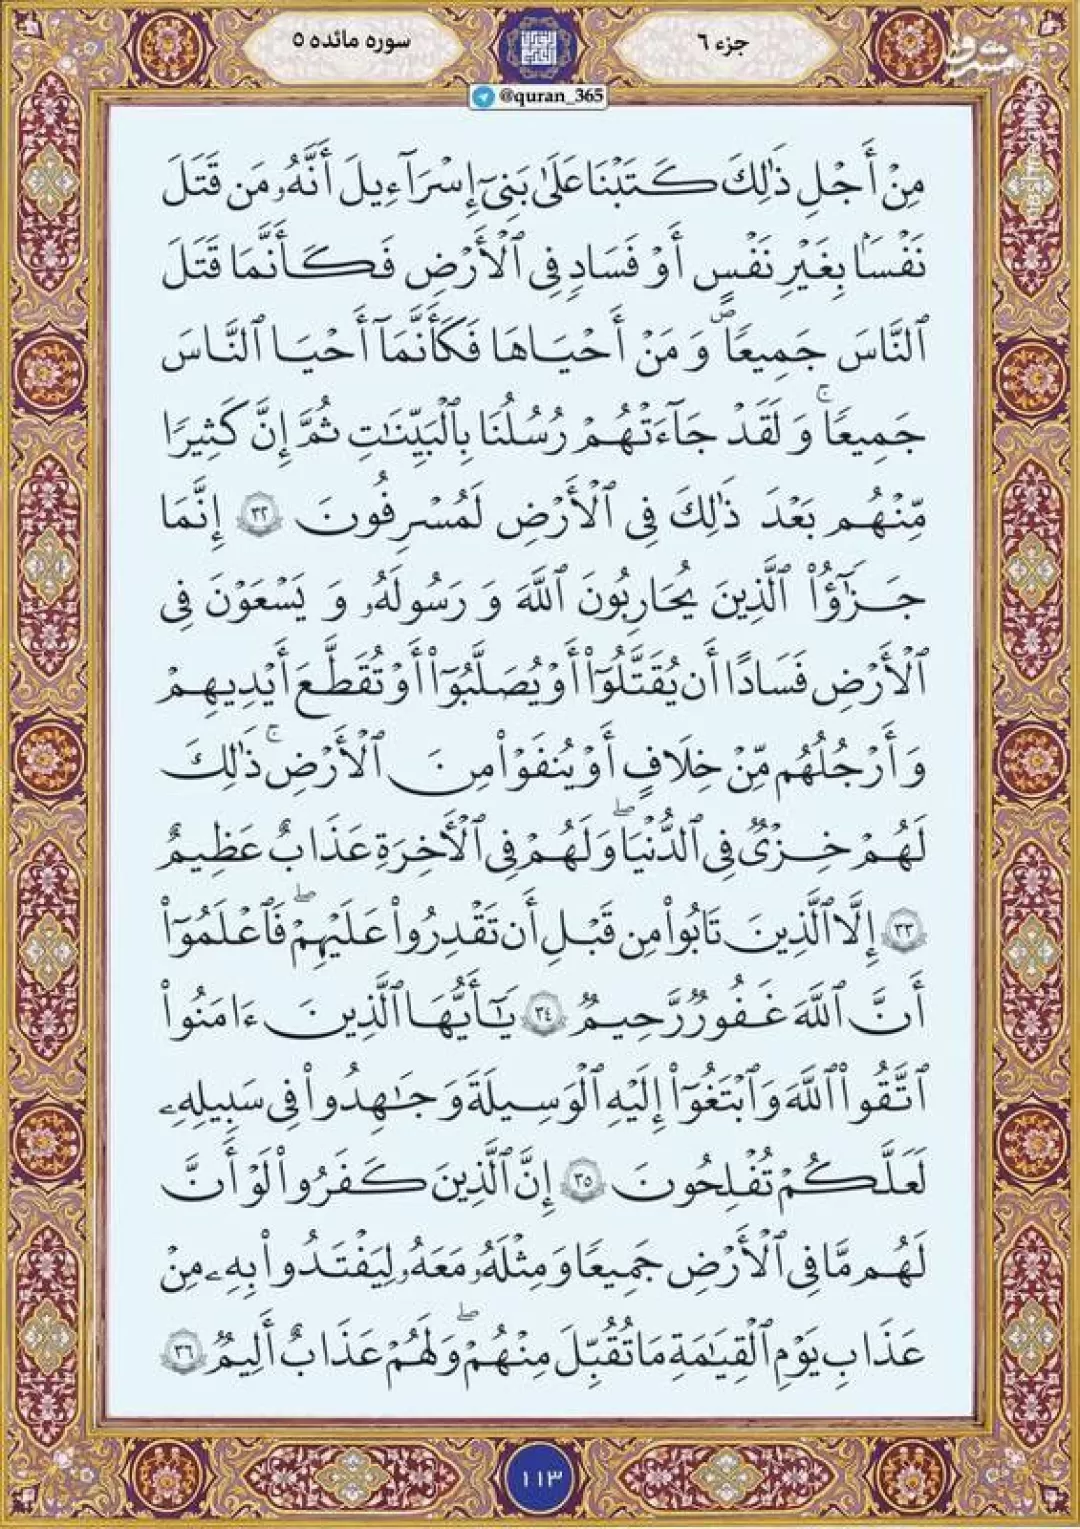 جزء ۶
سوره مائده ۵
مشرق
mashreghnews.ir
@quran_365
مِنْ أَجْلِ ذَٰلِكَ كَتَبْنَا عَلَىٰ بَنِىٓ إِسْرَآءِيلَ أَنَّهُۥ مَن قَتَلَ
نَفْسًۢا بِغَيْرِ نَفْسٍ أَوْ فَسَادٍ فِى ٱلْأَرْضِ فَكَأَنَّمَا قَتَلَ
ٱلنَّاسَ جَمِيعًاۖ وَ مَنْ أَحْيَاهَا فَكَأَنَّمَآ أَحْيَا ٱلنَّاسَ
جَمِيعًاۚ وَ لَقَدْ جَآءَتْهُمْ رُسُلُنَا بِٱلْبَيِّنَٰتِ ثُمَّ إِنَّ كَثِيرًا
مِّنْهُم بَعْدَ ذَٰلِكَ فِى ٱلْأَرْضِ لَمُسْرِفُونَ ٣٢ إِنَّمَا
جَزَٰٓؤُا۟ ٱلَّذِينَ يُحَارِبُونَ ٱللَّهَ وَ رَسُولَهُۥ وَ يَسْعَوْنَ فِى
ٱلْأَرْضِ فَسَادًا أَن يُقَتَّلُوٓا۟ أَوْ يُصَلَّبُوٓا۟ أَوْ تُقَطَّعَ أَيْدِيهِمْ
وَ أَرْجُلُهُم مِّنْ خِلَافٍ أَوْ يُنفَوْا۟ مِنَ ٱلْأَرْضِۚ ذَٰلِكَ
لَهُمْ خِزْىٌ فِى ٱلدُّنْيَاۖ وَ لَهُمْ فِى ٱلْأَخِرَةِ عَذَابٌ عَظِيمٌ
٣٣ إِلَّا ٱلَّذِينَ تَابُوا۟ مِن قَبْلِ أَن تَقْدِرُوا۟ عَلَيْهِمْۖ فَٱعْلَمُوٓا۟
أَنَّ ٱللَّهَ غَفُورٌ رَّحِيمٌ ٣٤ يَٰٓأَيُّهَا ٱلَّذِينَ ءَامَنُوا۟
ٱتَّقُوا۟ ٱللَّهَ وَ ٱبْتَغُوٓا۟ إِلَيْهِ ٱلْوَسِيلَةَ وَ جَٰهِدُوا۟ فِى سَبِيلِهِۦ
لَعَلَّكُمْ تُفْلِحُونَ ٣٥ إِنَّ ٱلَّذِينَ كَفَرُوا۟ لَوْ أَنَّ
لَهُم مَّا فِى ٱلْأَرْضِ جَمِيعًا وَ مِثْلَهُۥ مَعَهُۥ لِيَفْتَدُوا۟ بِهِۦ مِنْ
عَذَابِ يَوْمِ ٱلْقِيَٰمَةِ مَا تُقُبِّلَ مِنْهُمْۖ وَ لَهُمْ عَذَابٌ أَلِيمٌ ٣٦
١١٣